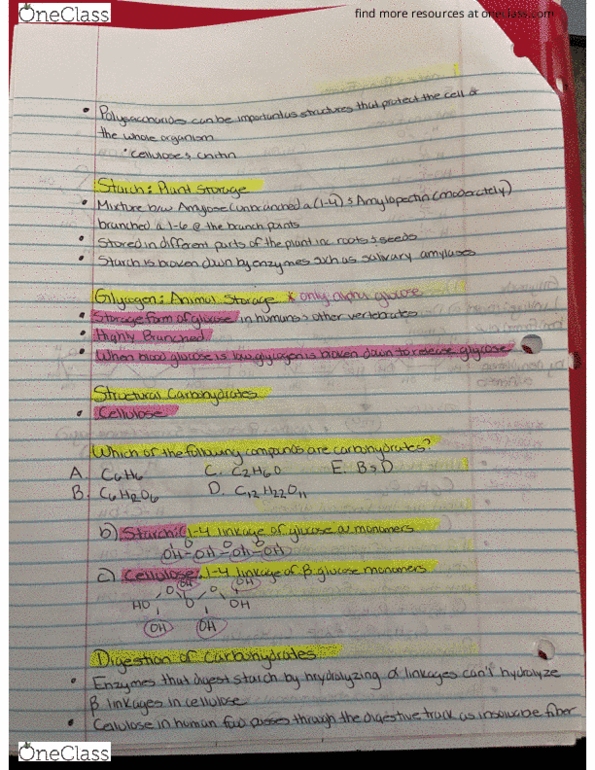 OneClass
find more resources at oneclass.com
• Polysaccharides can be important as structures that protect the cell &
the whole organism
• Cellulose & chitin
Starch: Plant Storage
• Mixture b/w Amylose (unbranched α (1-4) & Amylopectin (moderately)
branched α 1-6 @ the branch points
• Stored in different parts of the plant inc roots & seeds
• Starch is broken down by enzymes such as salivary amylases
Glycogen: Animal Storage * only alpha glucose
• Storage form of glucose in humans & other vertebrates
• Highly Branched
• When blood glucose is low glycogen is broken down to release glucose
Structural Carbohydrates
• Cellulose
Which of the following compounds are carbohydrates?
A. C6H6 C. C2H6O E. B & D
B. C6H12O6 D. C12H22O11
b) Starch: 1-4 linkage of glucose α monomers
O O O
OH-OH-OH-OH
c) Cellulose: 1-4 linkage of β glucose monomers
OH OH
O O
HO O OH
OH OH
Digestion of Carbohydrates
• Enzymes that digest starch by hydrolyzing α linkages can't hydrolyze
β linkages in cellulose
• Cellulose in human food passes through the digestive track as insoluble fiber
OneClass